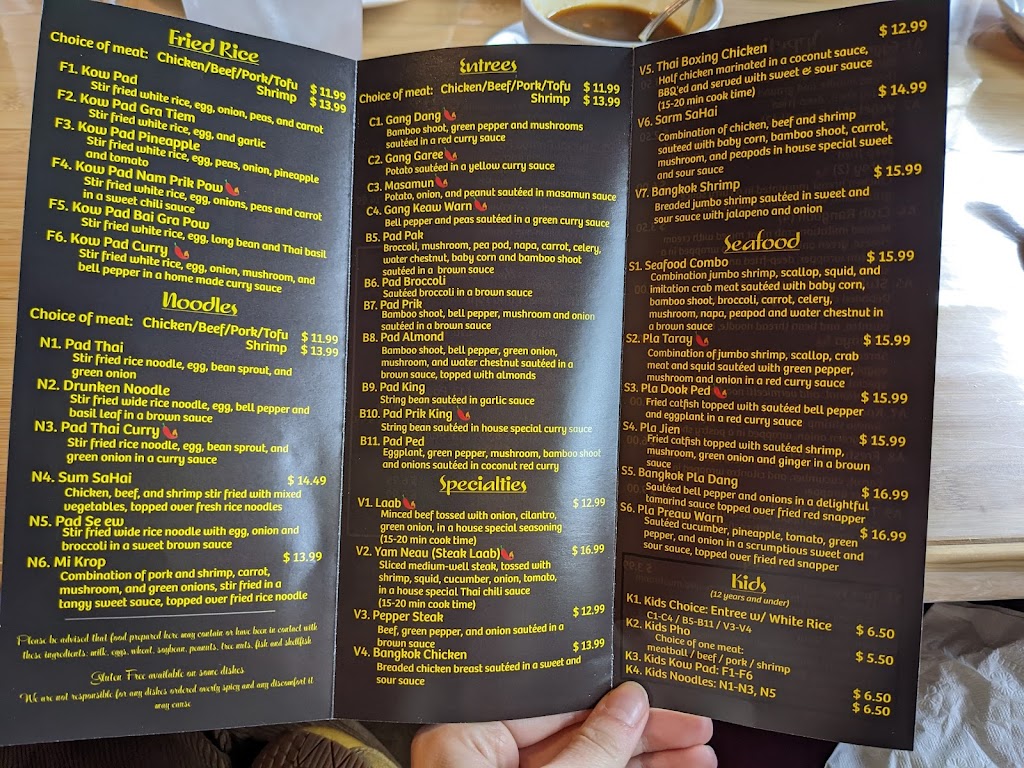 Fried Rice
Choice of meat: Chicken/Beef/Pork/Tofu $ 11.99
Shrimp $ 13.99
F1. Kow Pad
Stir fried white rice, egg, onion, peas, and carrot
F2. Kow Pad Gra Tiem
Stir fried white rice, egg, and garlic
F3. Kow Pad Pineapple
Stir fried white rice, egg, peas, onion, pineapple
and tomato
F4. Kow Pad Nam Prik Pow
Stir fried white rice, egg, onions, peas and carrot
in a sweet chili sauce
F5. Kow Pad Bai Gra Pow
Stir fried white rice, egg, long bean and Thai basil
F6. Kow Pad Curry
Stir fried white rice, egg, onion, mushroom, and
bell pepper in a home made curry sauce
Noodles
Choice of meat: Chicken/Beef/Pork/Tofu $ 11.99
Shrimp $ 13.99
N1. Pad Thai
Stir fried rice noodle, egg, bean sprout, and
green onion
N2. Drunken Noodle
Stir fried wide rice noodle, egg, bell pepper and
basil leaf in a brown sauce
N3. Pad Thai Curry
Stir fried rice noodle, egg, bean sprout, and
green onion in a curry sauce
N4. Sum SaHai $ 14.49
Chicken, beef, and shrimp stir fried with mixed
vegetables, topped over fresh rice noodles
N5. Pad Se ew
Stir fried wide rice noodle with egg, onion and
broccoli in a sweet brown sauce
N6. Mi Krop $ 13.99
Combination of pork and shrimp, carrot,
mushroom, and green onions, stir fried in a
tangy sweet sauce, topped over fried rice noodle
Please be advised that food prepared here may contain or have been in contact with
these ingredients: milk, eggs, wheat, soybean, peanuts, tree nuts, fish and shellfish
Gluten Free available on some dishes
We are not responsible for any dishes ordered overly spicy and any discomfort it
may cause
Entrees
Choice of meat: Chicken/Beef/Pork/Tofu $ 11.99
Shrimp $ 13.99
C1. Gang Dang
Bamboo shoot, green pepper and mushrooms
sautéed in a red curry sauce
C2. Gang Garee
Potato sautéed in a yellow curry sauce
C3. Masamun
Potato, onion, and peanut sautéed in masamun sauce
C4. Gang Keaw Warn
Bell pepper and peas sautéed in a green curry sauce
B5. Pad Pak
Broccoli, mushroom, pea pod, napa, carrot, celery,
water chestnut, baby corn and bamboo shoot
sautéed in a brown sauce
B6. Pad Broccoli
Sautéed broccoli in a brown sauce
B7. Pad Prik
Bamboo shoot, bell pepper, mushroom and onion
sautéed in a brown sauce
B8. Pad Almond
Bamboo shoot, bell pepper, green onion,
mushroom, and water chestnut sautéed in a
brown sauce, topped with almonds
B9. Pad King
String bean sautéed in garlic sauce
B10. Pad Prik King
String bean sautéed in house special curry sauce
B11. Pad Ped
Eggplant, green pepper, mushroom, bamboo shoot
and onions sautéed in coconut red curry
Specialties
V1. Laab $ 12.99
Minced beef tossed with onion, cilantro,
green onion, in a house special seasoning
(15-20 min cook time)
V2. Yam Neau (Steak Laab) $ 16.99
Sliced medium-well steak, tossed with
shrimp, squid, cucumber, onion, tomato,
in a house special Thai chili sauce
(15-20 min cook time)
V3. Pepper Steak $ 12.99
Beef, green pepper, and onion sautéed in a
brown sauce
V4. Bangkok Chicken $ 13.99
Breaded chicken breast sautéed in a sweet and
sour sauce
V5. Thai Boxing Chicken $ 12.99
Half chicken marinated in a coconut sauce,
BBQ'ed and served with sweet & sour sauce
(15-20 min cook time)
V6. Sarm SaHai $ 14.99
Combination of chicken, beef and shrimp
sauteed with baby corn, bamboo shoot, carrot,
mushroom, and peapods in house special sweet
and sour sauce
V7. Bangkok Shrimp $ 15.99
Breaded jumbo shrimp sautéed in sweet and
sour sauce with jalapeno and onion
Seafood
S1. Seafood Combo $ 15.99
Combination jumbo shrimp, scallop, squid, and
imitation crab meat sautéed with baby corn,
bamboo shoot, broccoli, carrot, celery,
mushroom, napa, peapod and water chestnut in
a brown sauce
S2. Pla Taray $ 15.99
Combination of jumbo shrimp, scallop, crab
meat and squid sautéed with green pepper,
mushroom and onion in a red curry sauce
S3. Pla Dook Ped $ 15.99
Fried catfish topped with sautéed bell pepper
and eggplant in a red curry sauce
S4. Pla Jien $ 15.99
Fried catfish topped with sautéed shrimp,
mushroom, green onion and ginger in a brown
sauce
S5. Bangkok Pla Dang $ 16.99
Sautéed bell pepper and onions in a delightful
tamarind sauce topped over fried red snapper
S6. Pla Preaw Warn $ 16.99
Sautéed cucumber, pineapple, tomato, green
pepper, and onion in a scrumptious sweet and
sour sauce, topped over fried red snapper
Kids
(12 years and under)
K1. Kids Choice: Entree w/ White Rice $ 6.50
C1-C4 / B5-B11 / V3-V4
K2. Kids Pho $ 5.50
Choice of one meat:
meatball / beef / pork / shrimp
K3. Kids Kow Pad: F1-F6 $ 6.50
K4. Kids Noodles: N1-N3, N5 $ 6.50